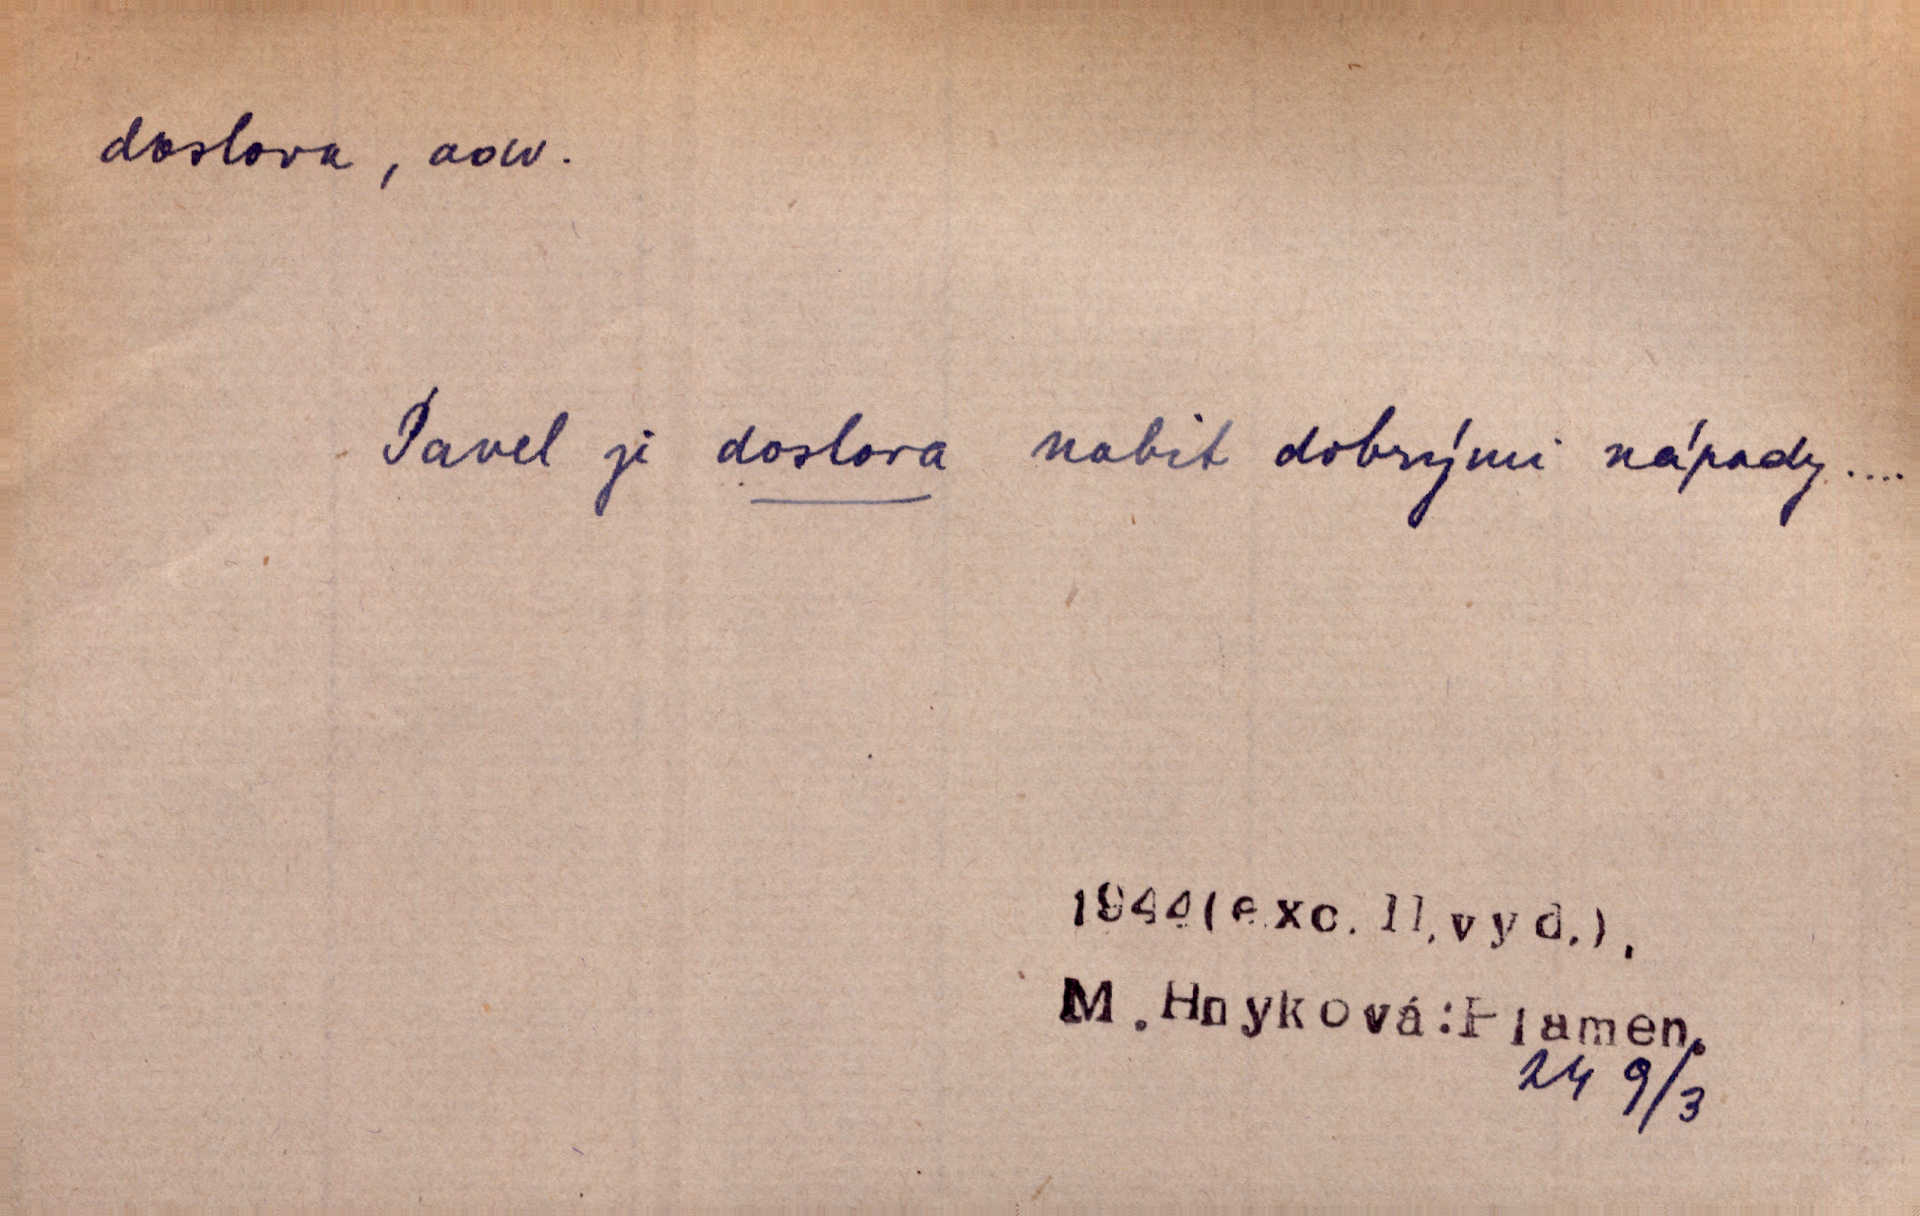 doslova, adv.
Pavel je doslova nabit dobrými nápady....
1944(exc. II.vyd.),
M.Hnyková:Plamen.
24 9/3